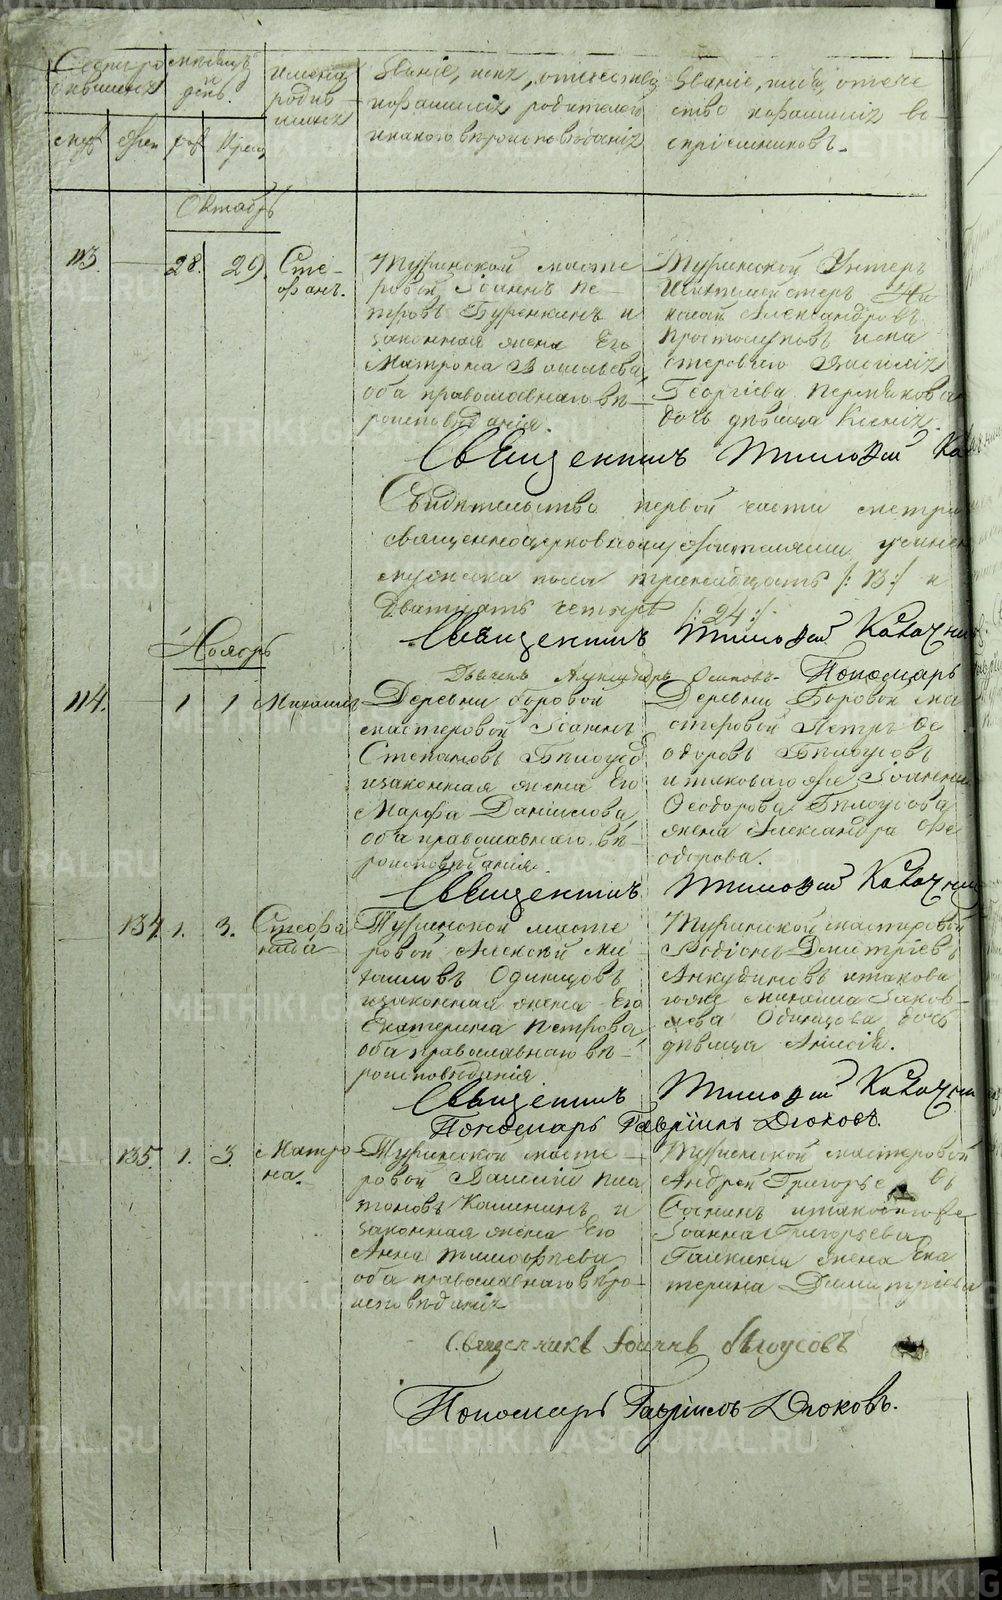 Счетъ ро
дившихся
мѣсяцъ
и
день.
имена
родив
шихся
Званіе, имя, отечество
и фамилія родителей
и какого вѣроисповѣданія
Званіе, имя, отече
ство и фамилія во-
спріемниковъ.
муж жен рож Крещ
Октябрь
113. 28. 29. Сте-
фанъ.
Туринской масте
ровой Іоаннъ Пе-
тровъ Буренкинъ и
законная жена Его
Матрона Васильева
оба православнаго вѣ-
роисповѣданія.
Туринской Унтеръ
Шихтмейстеръ Ни
колай Александровъ
и ма
стероваго Василія
Георгіева Пермякова
дочь дѣвица Ксенія.
Священникъ Тимофей
Свидѣтельство первой части метри
священноцерковнослужителями учинен
мужеска пола тринадцать /:13:/ и
Дватцать четыре /:24:/.
Священникъ Тимофей Казачни
Ноябрь
Пономарь
114. 1 1 Михаилъ
Деревни боровой
мастеровой Іоаннъ
Степановъ Бѣлоусовъ
и законная жена Его
Марфа Даніилова
оба православнаго вѣ-
роисповѣданія.
Деревни Боровой ма
стеровой Петръ Ѳе
одоровъ Бѣлоусовъ
и таковаго же Іоанна
Ѳеодорова Бѣлоусова
жена Александра Ѳе
одорова.
Священникъ Тимофей Казачни
134. 1. 3. Стефа
нида
Туринской масте
ровой Алексѣй Ми
хаиловъ Одинцовъ
и законная жена Его
Екатерина Петрова
оба православнаго вѣ-
роисповѣданія
Туринской мастеровой
Родіонъ Дмитріевъ
Анкудиновъ и такова
гоже Михаила Іаков-
лева Одинцова дочь
дѣвица Анисія.
Священникъ Тимофей Казачни
Пономарь Гавріилъ Дюковъ.
135. 1. 3. Матро
на.
Туринской масте-
ровой Василій Пла
тоновъ Кашинъ и
законная жена Его
Анна Тимофѣева
оба православнаго вѣро-
исповѣданія
Туринской мастеровой
Андрей Григорье въ
и таковаго же
Іоанна Григорьева
Галкина жена Ека
терина Димитріева
Священникъ Іоаннъ Бѣлоусовъ
Пономарь Гавріилъ Дюковъ.
METRIKI.GASO-URAL.RU